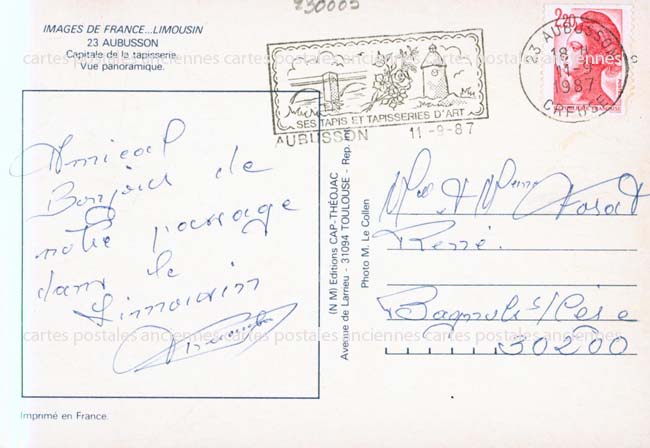 730005
IMAGES DE FRANCE...LIMOUSIN
23 AUBUSSON
Capitale de la tapisserie.
Vue panoramique.
SES TAPIS ET TAPISSERIES D'ART
AUBUSSON 11-9-87
2,20
23 AUBUSSON
18 H
11-9
1987
CREUSE
Amical
Bonjour de
notre passage
dans le
Limousin
(N M) Editions CAP-THÉOJAC
Avenue de Larrieu - 31094 TOULOUSE - Rep. Int.
Photo M. Le Collen
René
Bagnols/Cèze
30200
cartes postales anciennes cartes postales anciennes cartes postales anciennes
cartes postales anciennes cartes postales anciennes cartes postales anciennes
Imprimé en France.